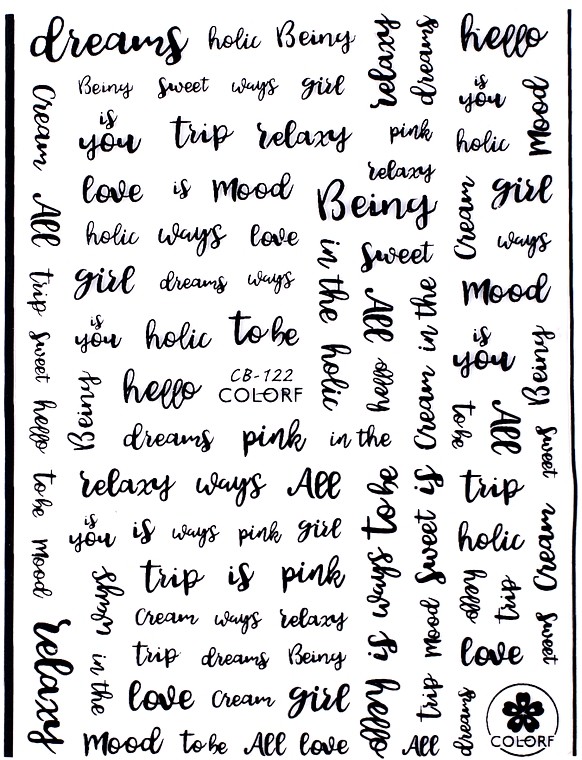 dreams holic Being
relaxy
dreams
hello
Being sweet ways girl
is
you
Mood
Cream
is
you
trip relaxy pink
holic
love is Mood
relaxy
Being
Cream
girl
All
holic ways love
in the
sweet
ways
girl dreams ways
All
in the
Mood
trip
is
you
holic to be
holic
hello
Cream
is
you
Being
sweet
Being
hello
CB-122
COLORF
to be
All
hello
dreams pink in the
sweet
to be
relaxy ways All
to be
is
trip
is
you
is ways pink girl
ways
sweet
holic
Cream
mood
trip is pink
is
hello
trip
Cream ways relaxy
mood
sweet
in the
trip dreams Being
love
relaxy
love cream girl
hello
trip
dreams
Mood to be All love
All
COLORF